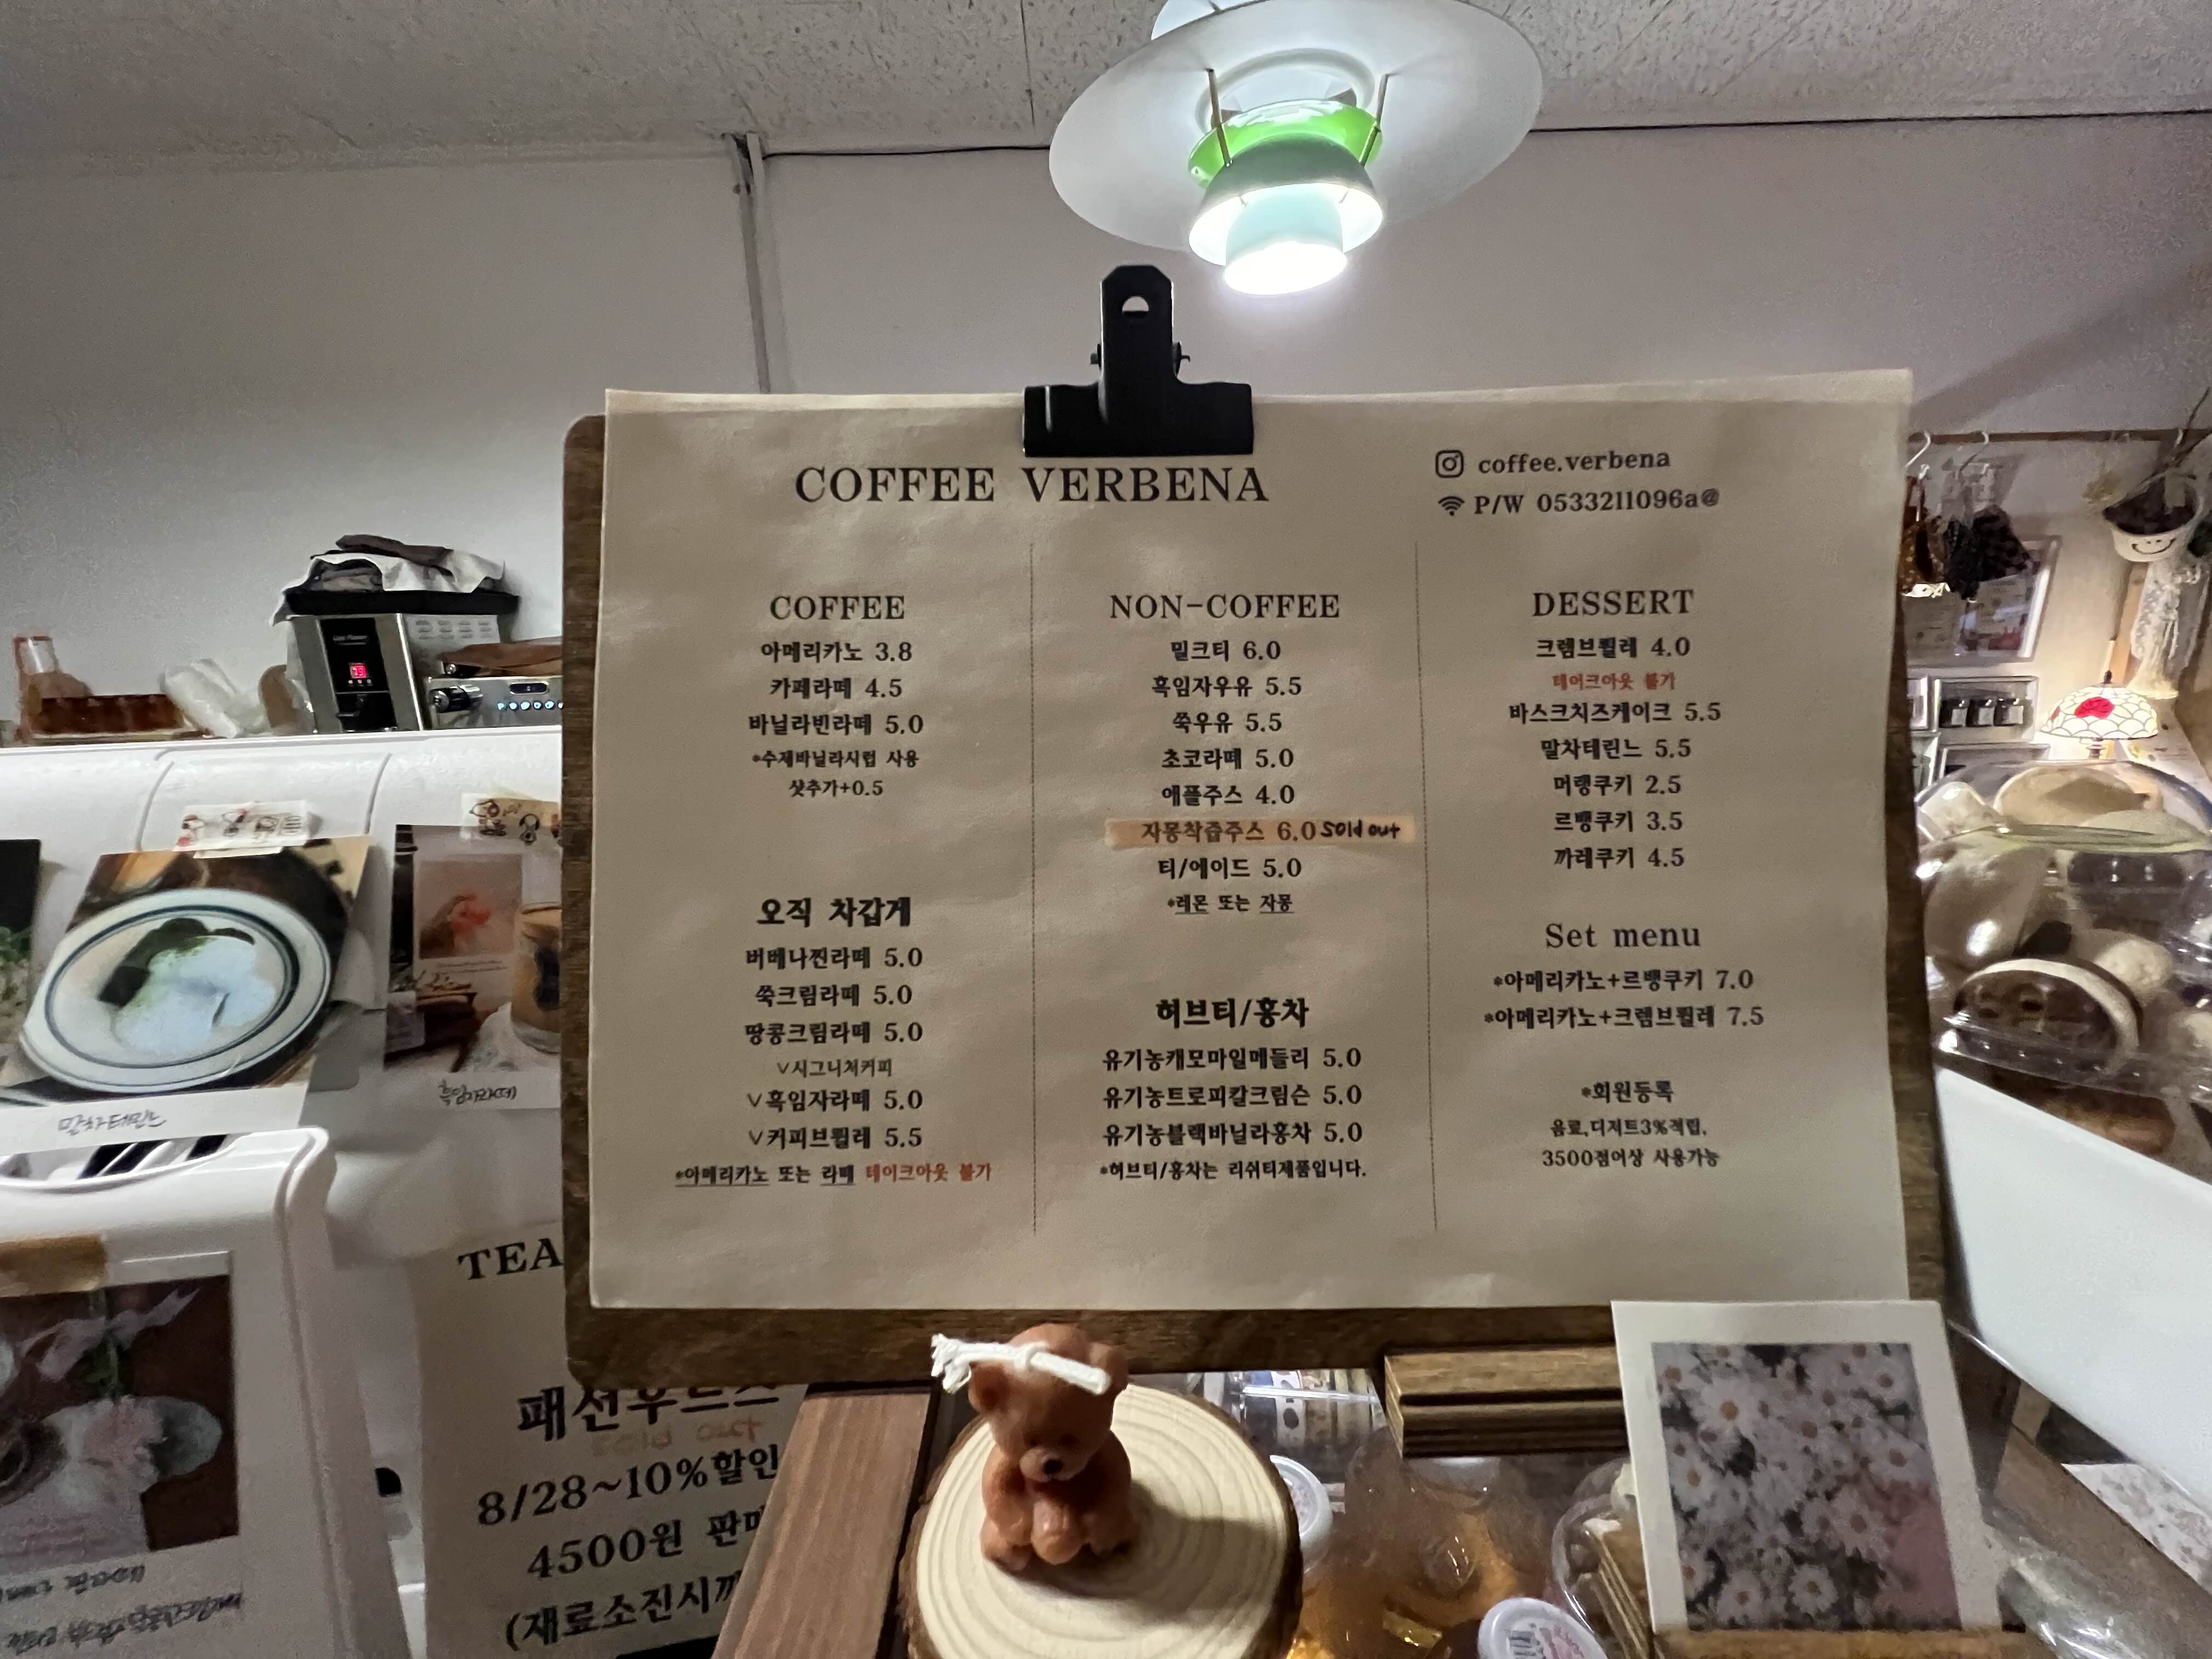 COFFEE VERBENA
coffee.verbena
P/W 0533211096a@
COFFEE
아메리카노 3.8
카페라떼 4.5
바닐라빈라떼 5.0
*수제바닐라시럽 사용
샷추가+0.5
오직 차갑게
버베나찐라떼 5.0
쑥크림라떼 5.0
땅콩크림라떼 5.0
∨시그니처커피
∨흑임자라떼 5.0
∨커피브륄레 5.5
*아메리카노 또는 라떼 테이크아웃 불가
NON-COFFEE
밀크티 6.0
흑임자우유 5.5
쑥우유 5.5
초코라떼 5.0
애플주스 4.0
자몽착즙주스 6.0 sold out
티/에이드 5.0
*레몬 또는 자몽
허브티/홍차
유기농캐모마일메들리 5.0
유기농트로피칼크림슨 5.0
유기농블랙바닐라홍차 5.0
*허브티/홍차는 리쉬티제품입니다.
DESSERT
크렘브륄레 4.0
테이크아웃 불가
바스크치즈케이크 5.5
말차테린느 5.5
머랭쿠키 2.5
르뱅쿠키 3.5
까레쿠키 4.5
Set menu
*아메리카노+르뱅쿠키 7.0
*아메리카노+크렘브륄레 7.5
*회원등록
음료,디저트3%적립,
3500점이상 사용가능
말차테린느
흑임자라떼
TEA
패션후르츠
sold out
8/28~10%할인
4500원 판매
(재료소진시까